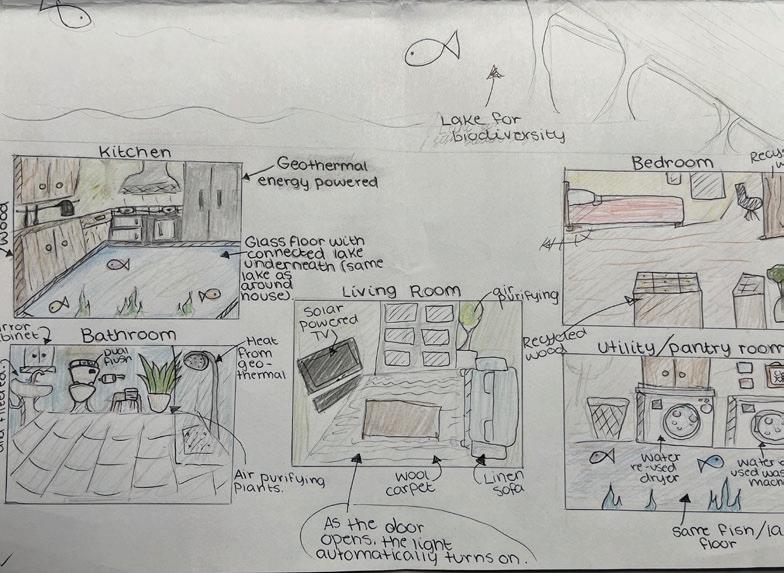 Lake for
biodiversity
Kitchen
Geothermal
energy powered
Wood
Glass floor with
connected lake
underneath (same
lake as
around
house).
Bathroom
cabinet
Dual
flush
Heat
from
geo-
thermal
Air purifying
plants.
Living Room
Solar
powered
TV
air
purifying
wool
carpet
Linen
sofa
As the door
opens, the light
automatically turns on.
Bedroom
Recycled
wood
Utility/pantry room
water
re-used
dryer
water
used
same fish/
floor